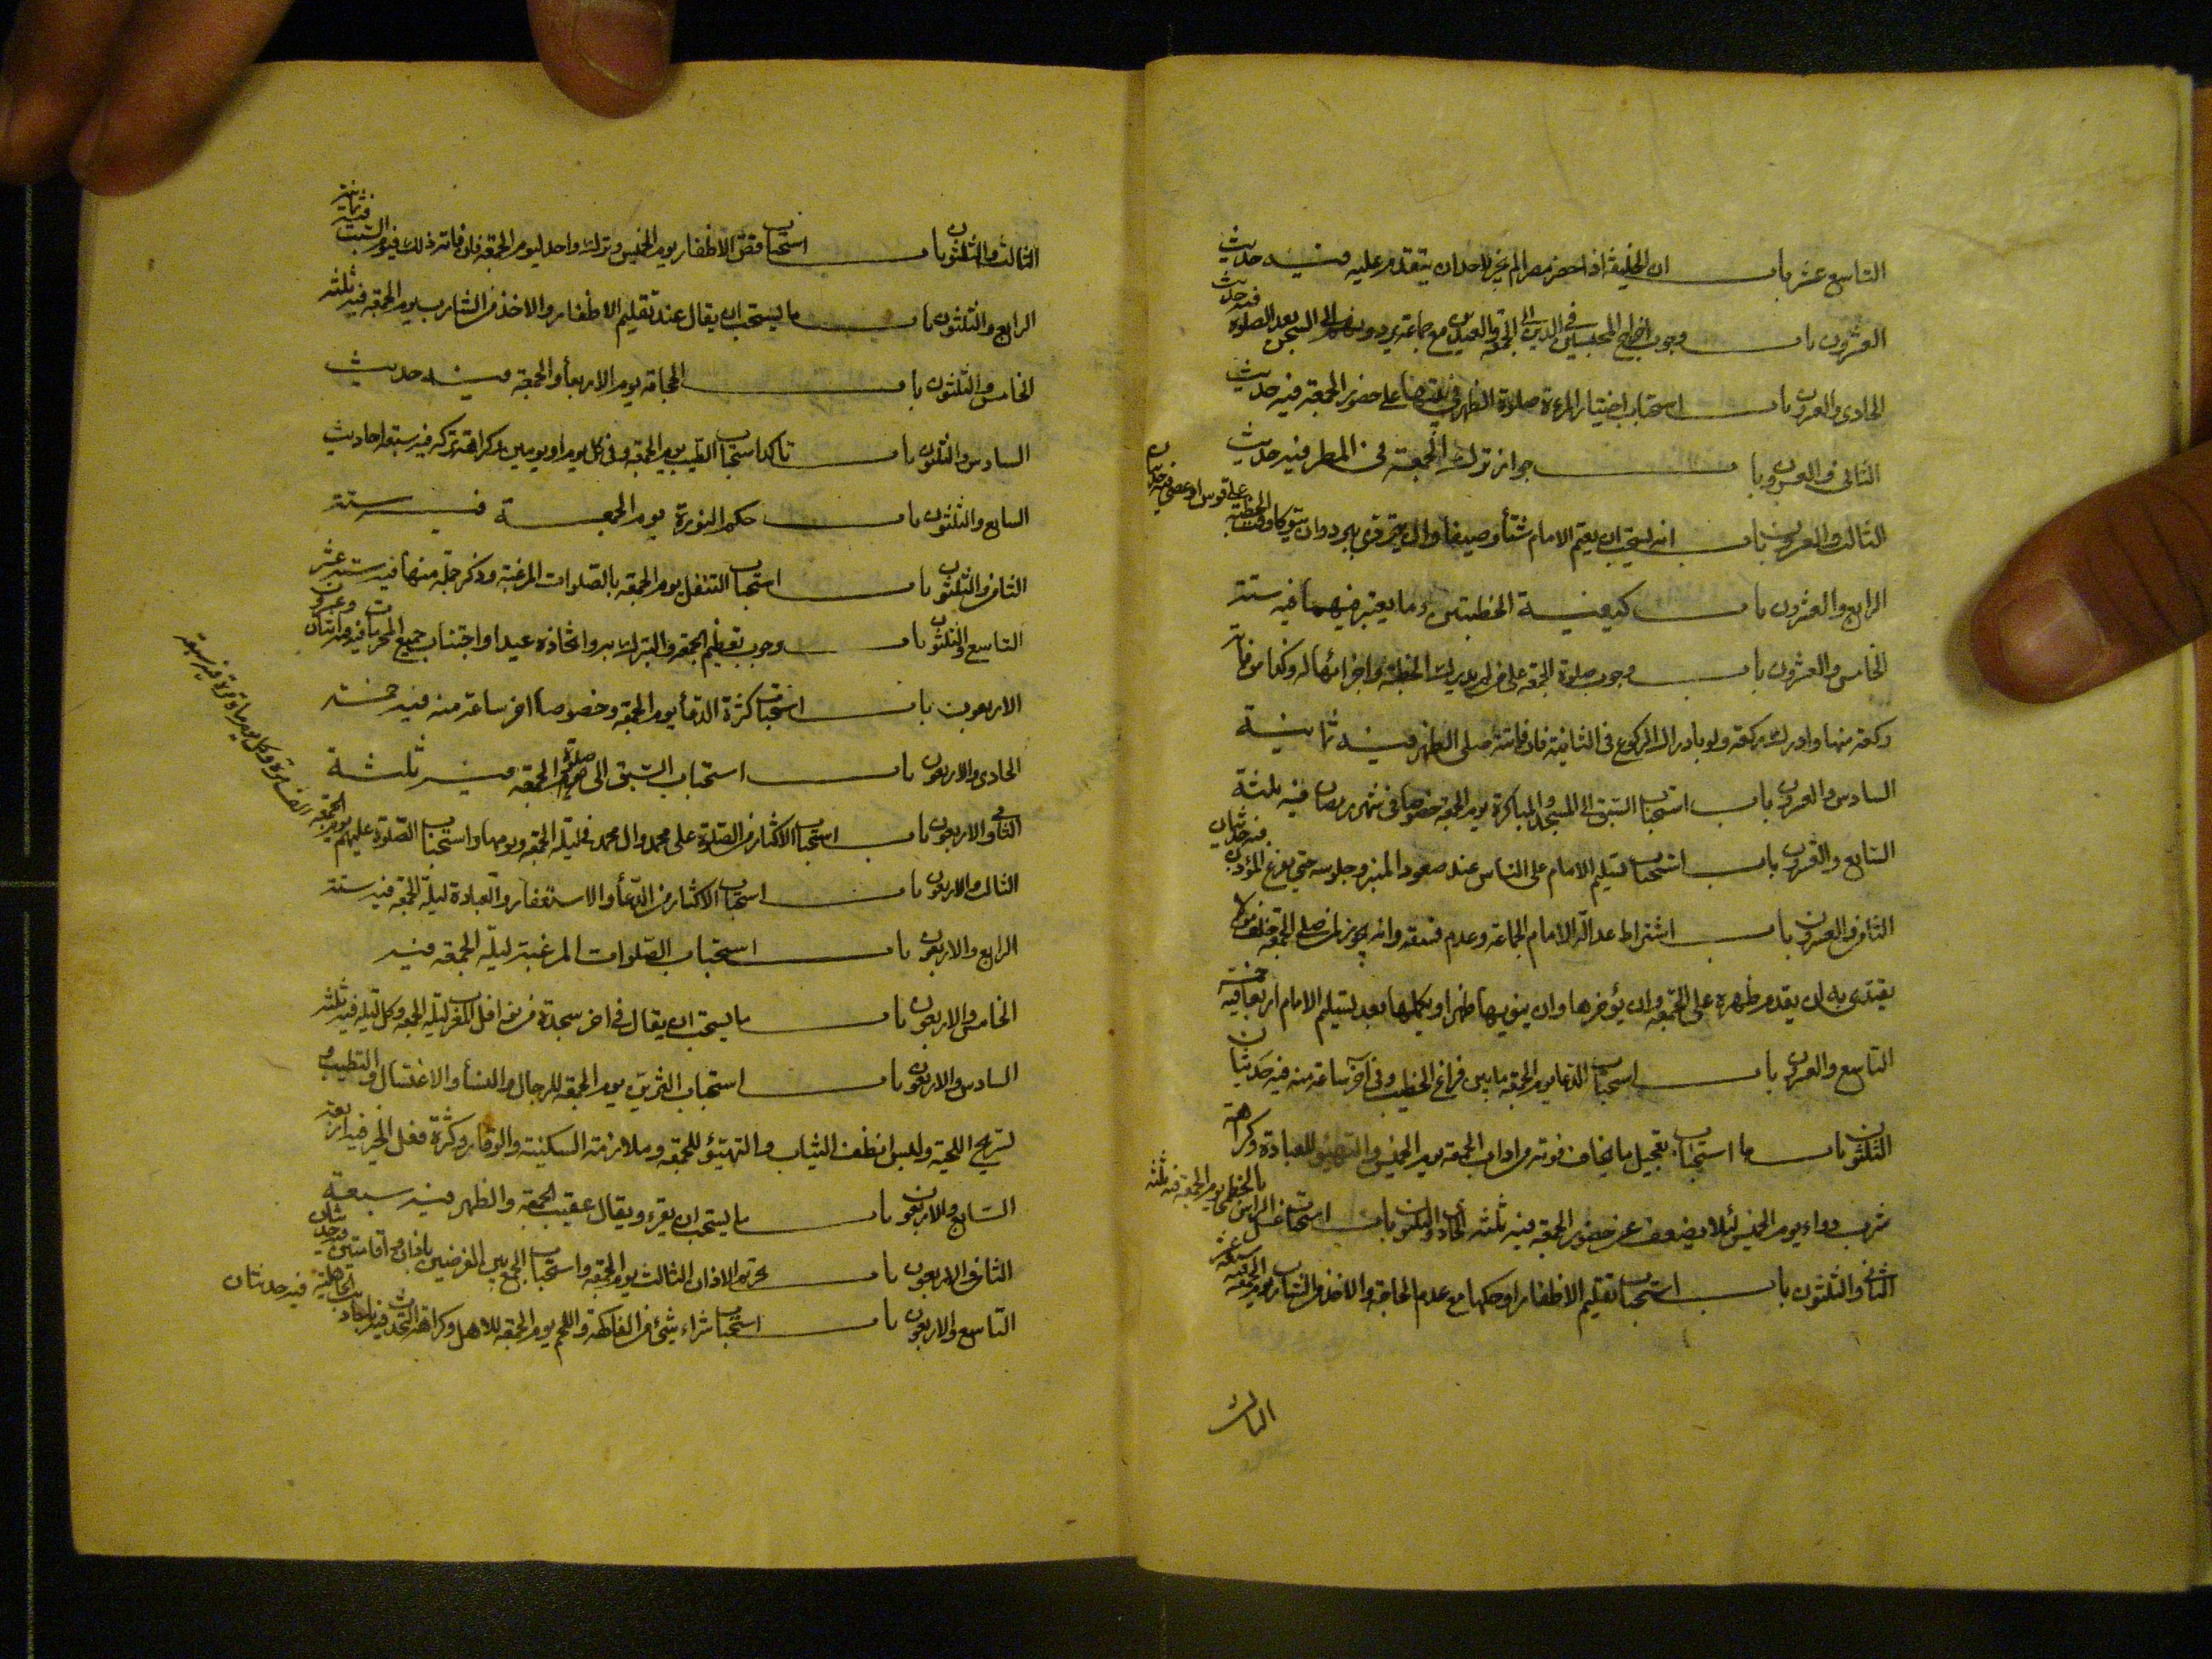 التاسع عشر باب ان الخليفة اذا حضر مصرا لم يجز لاحد ان يتقدم عليه فيه حديث
العشرون باب وجوب اخراج المحبسين في الدين الى الجمعة والعيدين مع جماعة يردونهم الى السجن بعد الصلوة فيه حديث
الحادي والعشرون باب استحباب اختيار المرءة صلوة الظهر في بيتها على حضور الجمعة فيه حديث
الثاني والعشرون باب جواز ترك الجمعة في المطر فيه حديث
الثالث والعشرون باب انه يستحب ان يعتم الامام شتأ وصيفا وان يتردى ببرد وان يتوكا وقت الخطبة على قوس او عصى فيه حديثان
الرابع والعشرون باب كيفية الخطبتين وما يعتبر فيهما فيه ستة
الخامس والعشرون باب وجوب صلوة الجمعة على من لم يدرك الخطبة واجزائها له وكذا من فاته
ركعة منها وادرك ركعة ولو بادراك الركوع في الثانية فان فاتته صلى الظهر فيه ثمانية
السادس والعشرون باب استحباب السبق الى المسجد والمباكرة يوم الجمعة خصوصا في شهر رمضان فيه ثلثة
السابع والعشرون باب استحباب تسليم الامام على الناس عند صعود المنبر وجلوسه حتى يفرغ المؤذن فيه حديثان
الثامن والعشرون باب اشتراط عدالة الامام الجماعة وعدم فسقه وانه يجوز لمن صلى الجمعة خلف من لا
يقتدى به ان يقدم ظهره على الجمعة وان يؤخرها وان ينويها ظهرا ويكملها بعد تسليم الامام اربعا فيه خمسة
التاسع والعشرون باب استحباب الدعا يوم الجمعة ما بين فراغ الخطيب وفي آخر ساعة منه فيه حديثان
الثلثون باب ما استحباب تعجيل ما يخاف فوته من اداب الجمعة يوم الخميس والتهيؤ للعبادة وكراهة
شرب دواء يوم الخميس لئلا يضعف عن حضور الجمعة فيه ثلثة الحادي والثلثون باب استحباب غسل الراس بالخطمي يوم الجمعة فيه ثلثة
الثاني والثلثون باب استحباب تقليم الاظفار او حكها مع عدم الحاجة والاخذ من الشارب يوم الجمعة فيه عشر
الثالث
الثالث والثلثون باب استحباب قص الاظفار يوم الخميس وترك واحد ليوم الجمعة فان فاته ذلك فيوم السبت فيه ثمانية
الرابع والثلثون باب ما يستحب ان يقال عند تقليم الاظفار والاخذ من الشارب يوم الجمعة فيه ثلثة
الخامس والثلثون باب الحجامة يوم الاربعأ والجمعة فيه حديث
السادس والثلثون باب تاكد استحباب الطيب يوم الجمعة وفي كل يوم او يومين وكراهة تركه فيه سبعة احاديث
السابع والثلثون باب حكم النورة يوم الجمعة فيه ستة
الثامن والثلثون باب استحباب التنفل يوم الجمعة بالصلوات المرغبة وذكر جملة منها فيه ستة عشر
التاسع والثلثون باب وجوب تعظيم الجمعة والتبرك به واتخاذه عيدا واجتناب جميع المحرمات فيه اثنان وعشرون
الاربعون باب استحباب كثرة الدعأ يوم الجمعة وخصوصا اخر ساعة منه فيه خمسة
الحادي والاربعون باب استحباب السبق الى صلوة الجمعة فيه ثلثة
الثاني والاربعون باب استحباب الاكثار من الصلوة على محمد وال محمد في ليلة الجمعة ويومها واستحباب الصلوة عليهم يوم الجمعة الف مرة وكل يوم مأة مرة فيه سبعة
الثالث والاربعون باب استحباب الاكثار من الدعأ والاستغفار والعبادة ليلة الجمعة فيه ستة
الرابع والاربعون باب استحباب الصلوات المرغبة ليلة الجمعة فيه
الخامس والاربعون باب ما يستحب ان يقال في اخر سجدة من نوافل المغرب ليلة الجمعة وكل ليلة فيه ثلثة
السادس والاربعون باب استحباب التزين يوم الجمعة للرجال والنسأ والاغتسال والتطيب و
تسريح اللحية ولبس انظف الثياب والتهيؤ للجمعة وملازمة السكينة والوقار وكثرة فعل الخير فيه اربعة
السابع والاربعون باب ما يستحب ان يقرء ويقال عقيب الجمعة والظهر فيه سبعة
الثامن والاربعون باب تحريم الاذان الثالث يوم الجمعة واستحباب الجمع بين الفرضين باذان واقامتين فيه حديثان
التاسع والاربعون باب استحباب شراء شيئ من الفاكهة واللحم يوم الجمعة للاهل وكراهة التحدث فيه باحاديث الجاهلية فيه حديثان